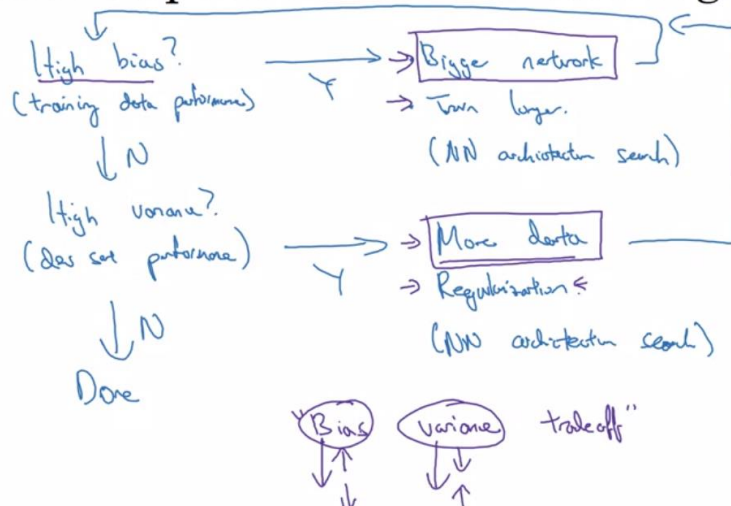 High bias? Y → Bigger network
(training data performance) → Train longer.
N (NN architecture search)
High variance?
(dev set performance) Y → More data
→ Regularization.
N (NN architecture search)
Done
"Bias variance tradeoff"